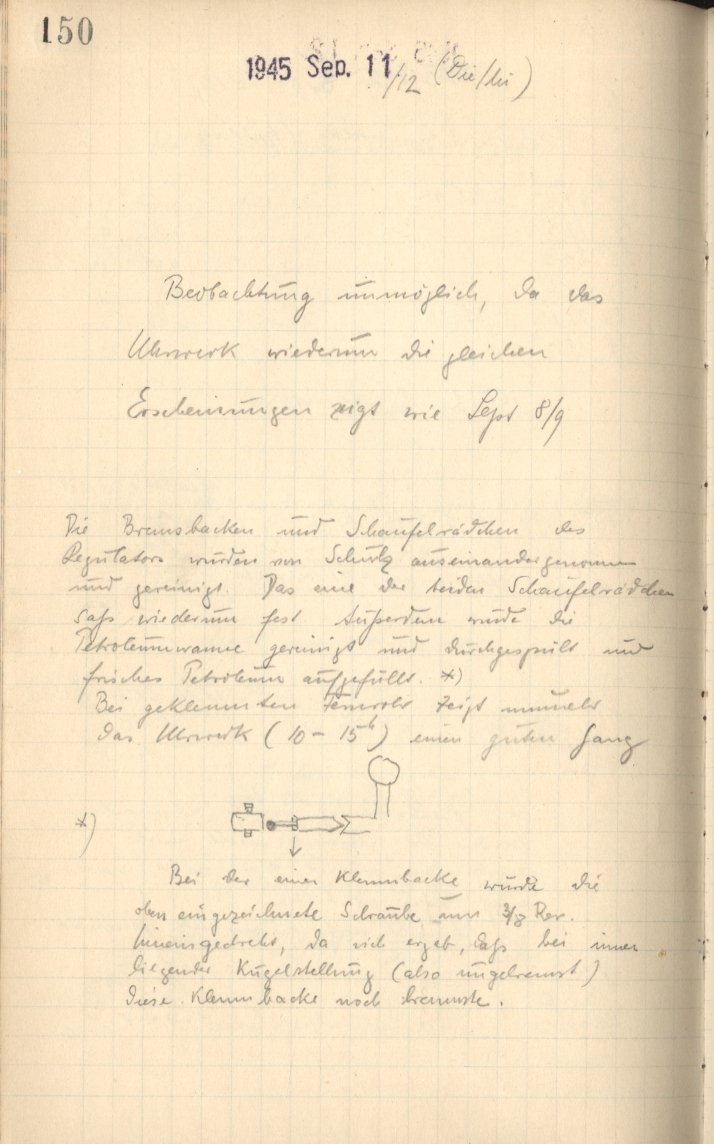 150
1945 Sep. 11/12 (Die/Mi)
Beobachtung unmöglich, da das
Uhrwerk wiederum die gleichen
Erscheinungen zeigt wie Sept 8/9
Die Bremsbacken und Schaufelrädchen des
Regulators wurden von Schütz auseinandergenommen
und gereinigt. Das eine der beiden Schaufelrädchen
saſs wiederum fest. Auſserdem wurde die
Petroleumwanne gereinigt und durchgespült und
frisches Petroleum aufgefüllt. *)
Bei geklemmten Fernrohr zeigt nunmehr
das Uhrwerk (10 – 15h) einen guten Gang
*)
Bei der einen Klemmbacke wurde die
oben eingezeichnete Schraube um 3/8 Rev.
hineingedreht, da sich ergab, daſs bei innen
liegender Kugelstellung (also ungebremst)
diese Klemmbacke noch bremste.